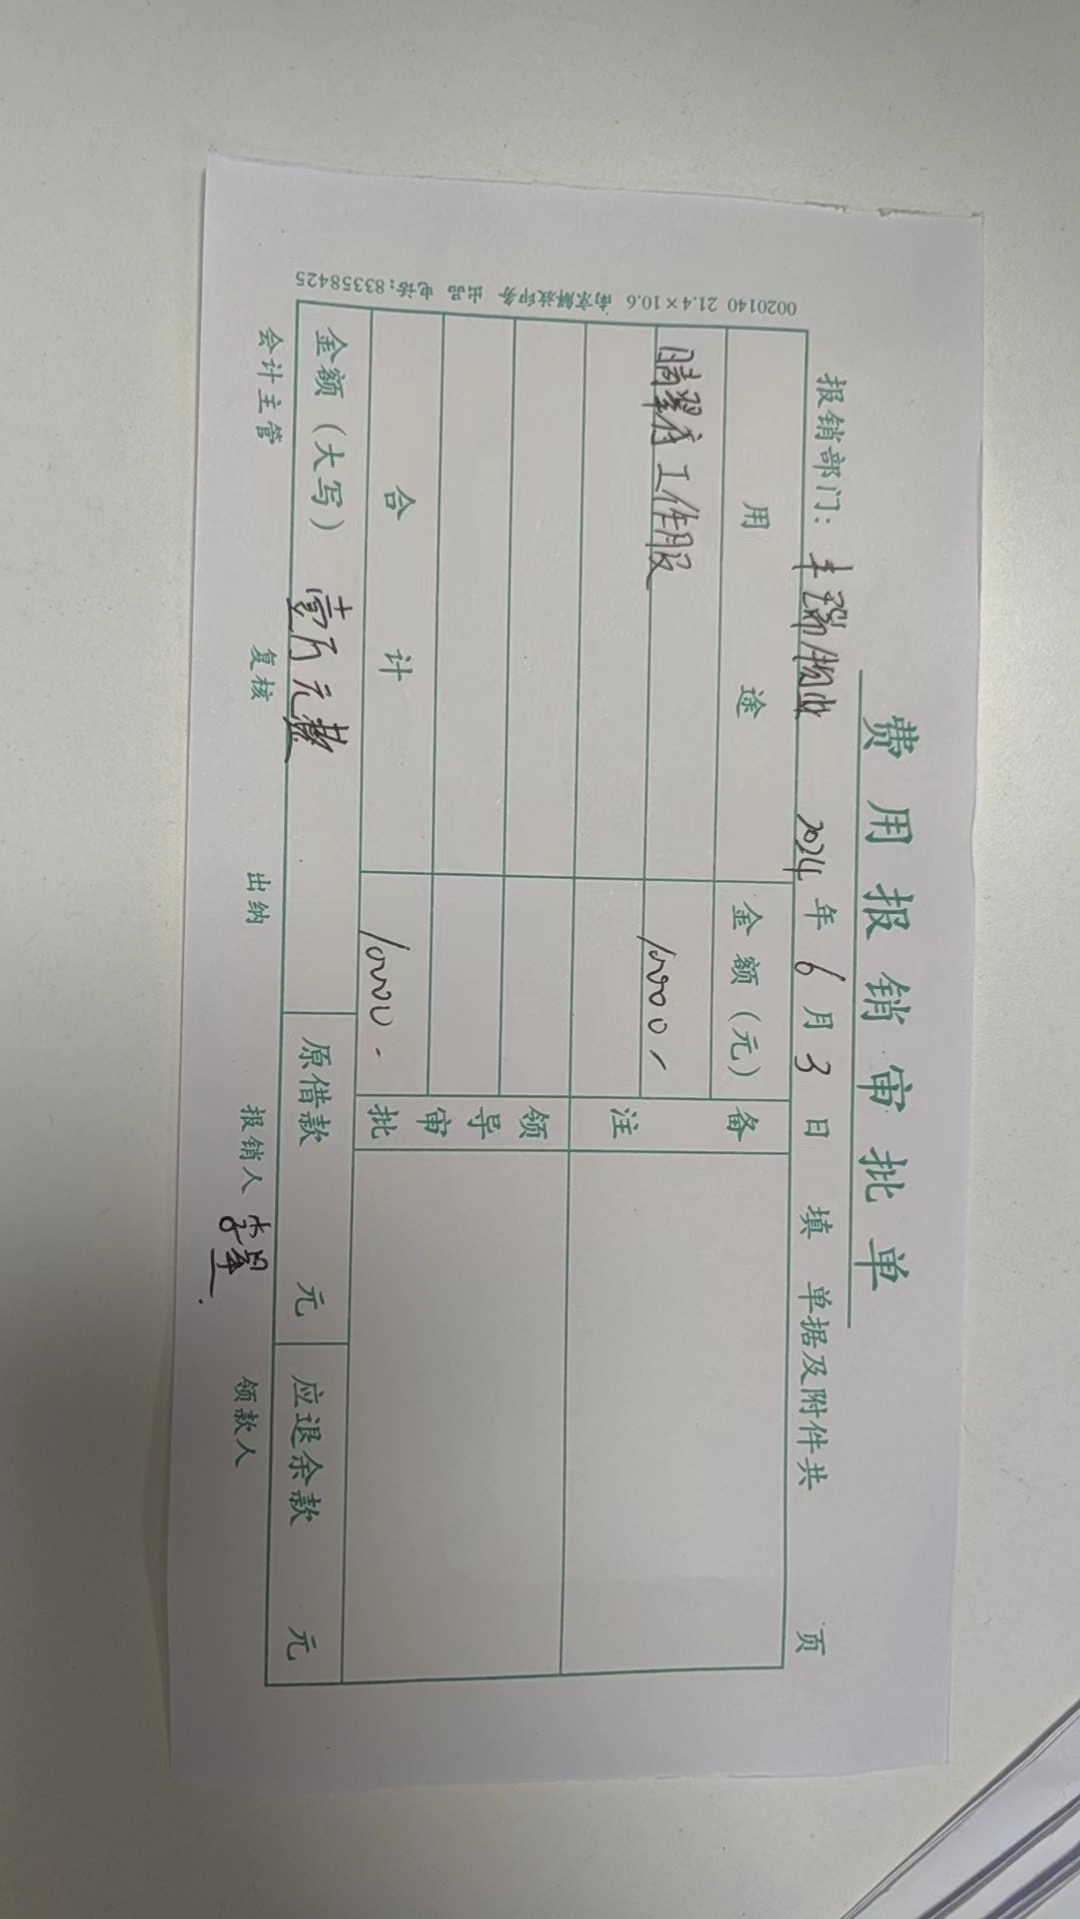 费用报销审批单
报销部门: 丰瑞物业 2024 年 6 月 3 日 填 单据及附件共 页
用途 金额(元) 备注
晴翠府工作服 10000-
领导审批
合计 10000-
金额(大写) 壹万元整 原借款 元 应退余款 元
会计主管 复核 出纳 报销人 领款人
0020140 21.4×10.6 南京解放印务 出品 电话:83358425